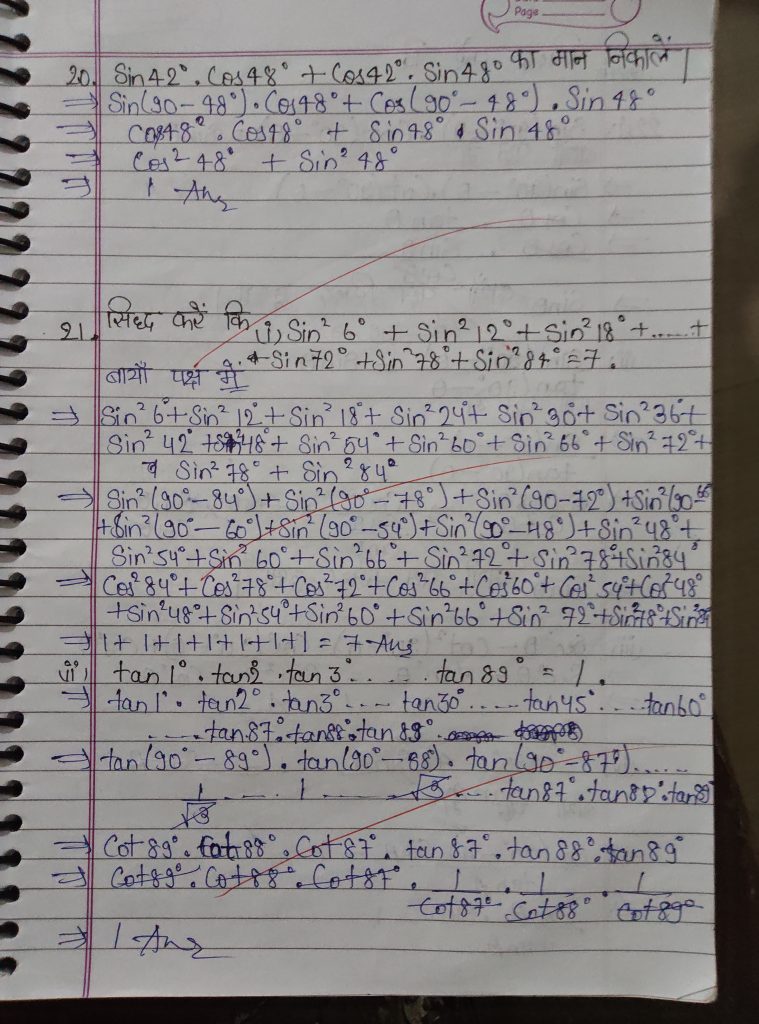 Page
20. Sin42°. Cos48° + Cos42°. Sin48° का मान निकालें।
⇒ Sin(90-48°). Cos48° + Cos(90°-48°). Sin 48°
⇒ Cos48°. Cos48° + Sin48° . Sin 48°
⇒ Cos² 48° + Sin² 48°
⇒ 1 Ans
21. सिध्द करें कि (i) Sin² 6° + Sin² 12° + Sin² 18° + ...... +
+ Sin72° + Sin² 78° + Sin² 84° = 7.
बायाँ पक्ष में
⇒ Sin² 6° + Sin² 12° + Sin² 18° + Sin² 24° + Sin² 30° + Sin² 36° +
Sin² 42° + Sin² 48° + Sin² 54° + Sin² 60° + Sin² 66° + Sin² 72° +
Sin² 78° + Sin² 84°
⇒ Sin² (90°-84°) + Sin² (90°-78°) + Sin² (90-72°) + Sin² (90-66°
+ Sin² (90°-60°) + Sin² (90°-54°) + Sin² (90°-48°) + Sin² 48° +
Sin² 54° + Sin² 60° + Sin² 66° + Sin² 72° + Sin² 78° + Sin² 84°
⇒ Cos² 84° + Cos² 78° + Cos² 72° + Cos² 66° + Cos² 60° + Cos² 54° + Cos² 48°
+ Sin² 48° + Sin² 54° + Sin² 60° + Sin² 66° + Sin² 72° + Sin² 78° + Sin² 84
⇒ 1+1+1+1+1+1+1 = 7 Ans
(ii) tan 1° . tan2 . tan 3° ..... tan 89° = 1.
⇒ tan 1° . tan2° . tan3° .... tan30° ..... tan45° .... tan60°
..... tan87° . tan88° . tan 89°
⇒ tan (90° - 89°) . tan(90° - 88) . tan (90° - 87°) .....
1/√3 .... 1 ...... √3 .... tan87° . tan88° . tan89°
⇒ Cot 89° . Cot 88° . Cot 87° . tan 87° . tan 88° . tan 89°
⇒ Cot89° . Cot88° . Cot87° . 1/Cot87° . 1/Cot88° . 1/Cot89°
⇒ 1 Ans